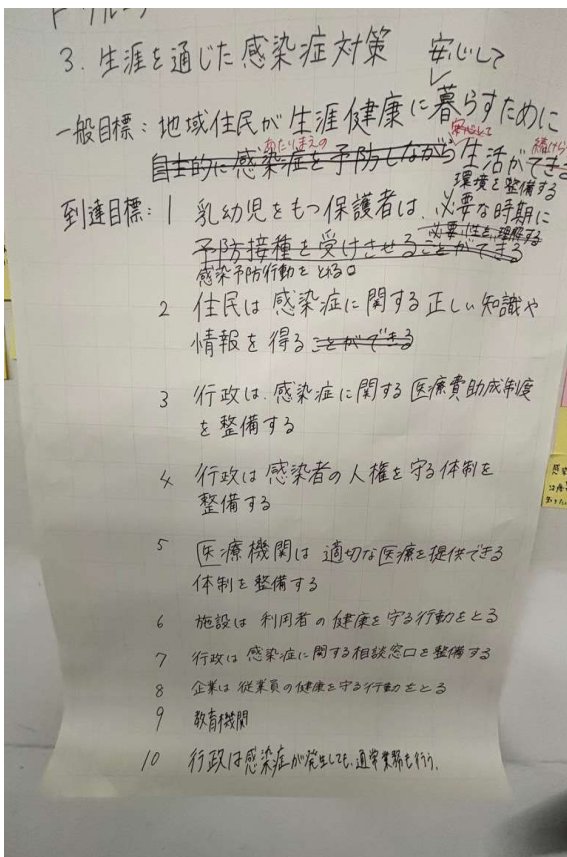 3. 生涯を通じた感染症対策
安心して
一般目標：地域住民が生涯健康に暮らすために
あたりまえの 安心して
自主的に感染症を予防しながら生活ができ
環境を整備する
到達目標：1 乳幼児をもつ保護者は、必要な時期に
必要性を理解する
予防接種を受けさせることができる
感染予防行動をとれる。
2 住民は感染症に関する正しい知識や
情報を得ることができる
3 行政は、感染症に関する医療費助成制度
を整備する
4 行政は感染者の人権を守る体制を
整備する
5 医療機関は適切な医療を提供できる
体制を整備する
6 施設は利用者の健康を守る行動をとる
7 行政は感染症に関する相談窓口を整備する
8 企業は従業員の健康を守る行動をとる
9 教育機関
10 行政は感染症が発生しても、通常業務を行う。